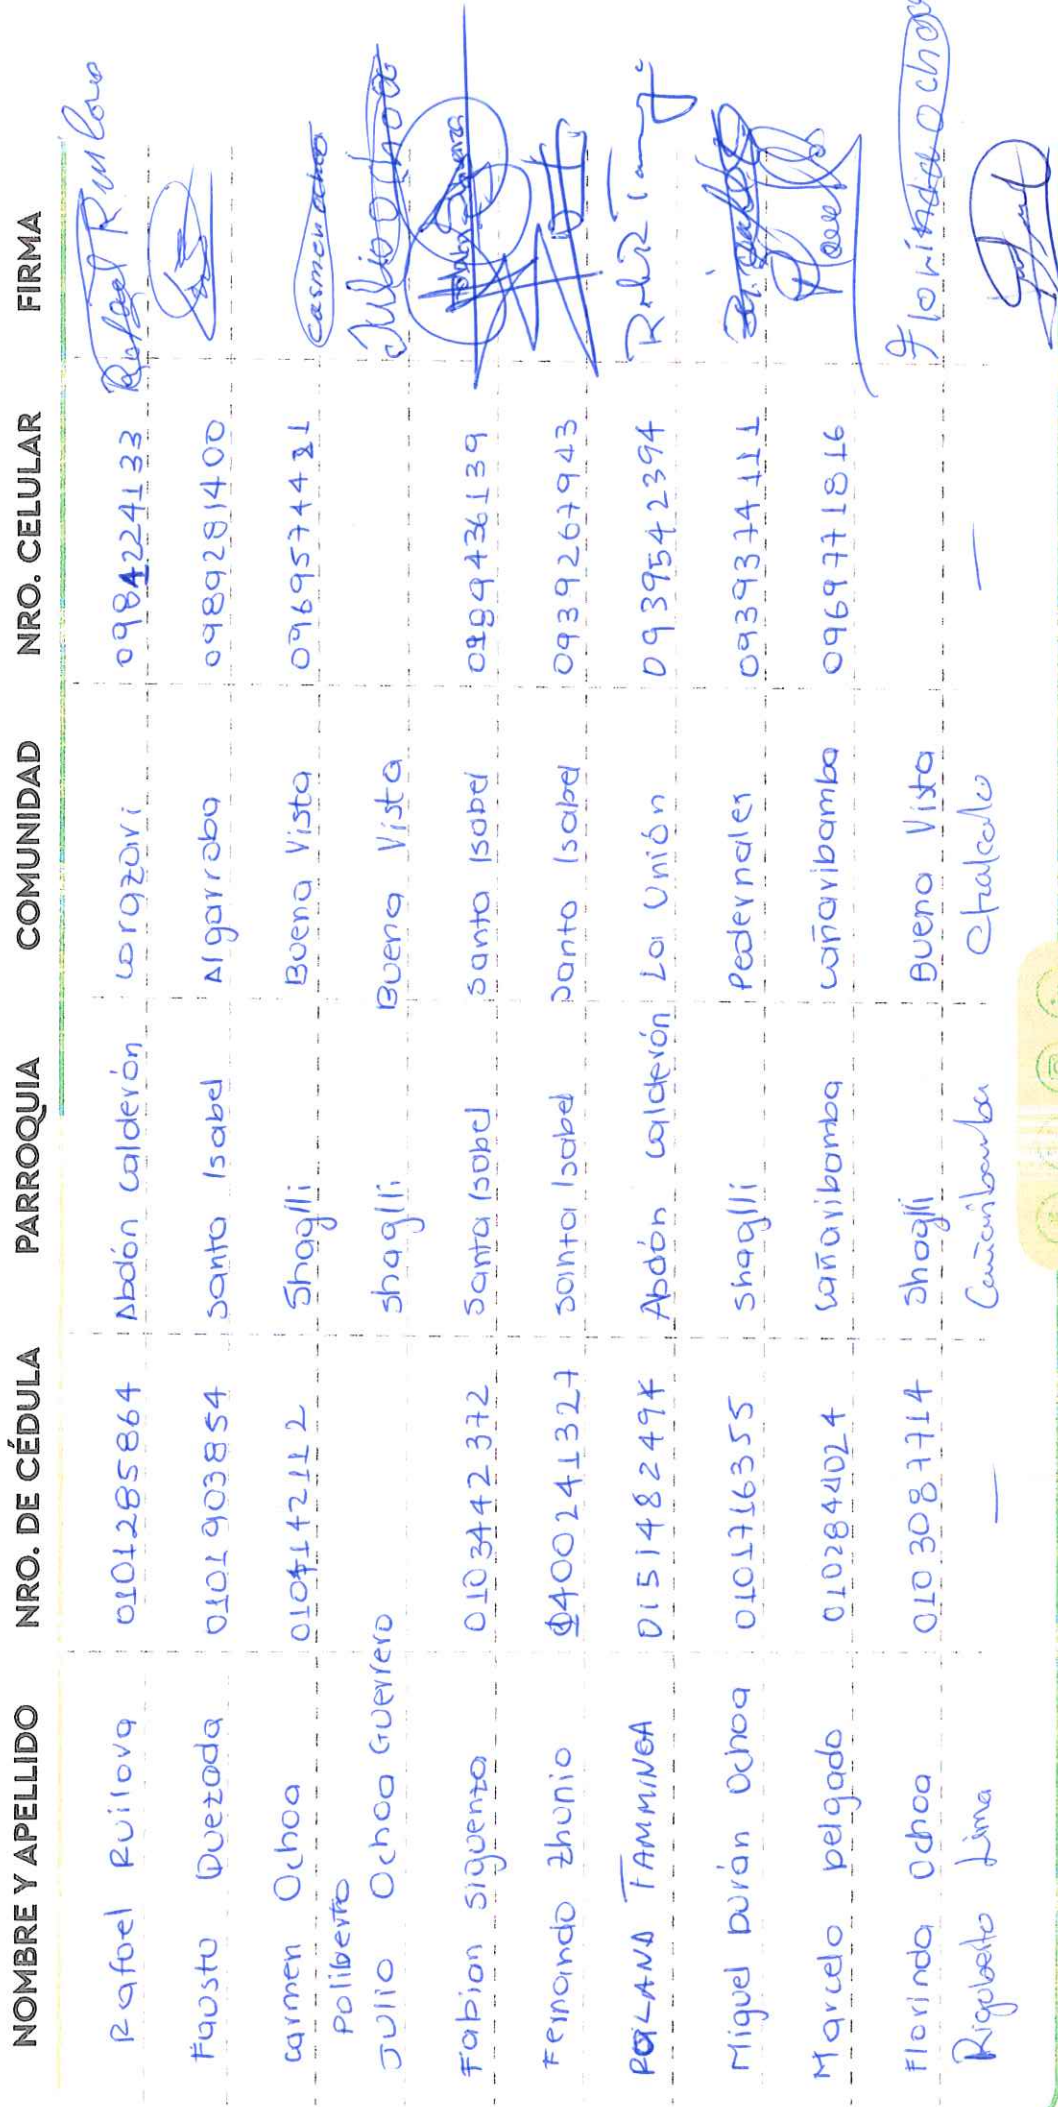 NOMBRE Y APELLIDO NRO. DE CÉDULA PARROQUIA COMUNIDAD NRO. CELULAR FIRMA
Rafael Ruilova 0101285864 Abdón Calderón Corazari 0984224133 Rafael Ruilova
Fausto Quezada 0101903854 Santa Isabel Algarroba 0989281400
Carmen Ochoa 0104142112 Shaglli Buena Vista 0969574421 Carmen ochoa
Poliberto
Julio Ochoa Guerrero Shaglli Buena Vista Julio ochoa
Fabian Siguenza 0103442372 Santa Isabel Santa Isabel 0989436139
Fernando Zhunio 1400241327 Santa Isabel Santa Isabel 0939267943
ROLAND TAMMINGA 015148249X Abdón Calderón La Unión 0939542394
Miguel Durán Ochoa 0101716355 Shaglli Pedernales 0939374111
Marcelo Delgado 0102844024 Cañaribamba Cañaribamba 0969771816
Florinda Ochoa 0103087714 Shaglli Buena Vista Florinda ochoa
Rigoberto Lima — Cañaribamba Chalcalo —